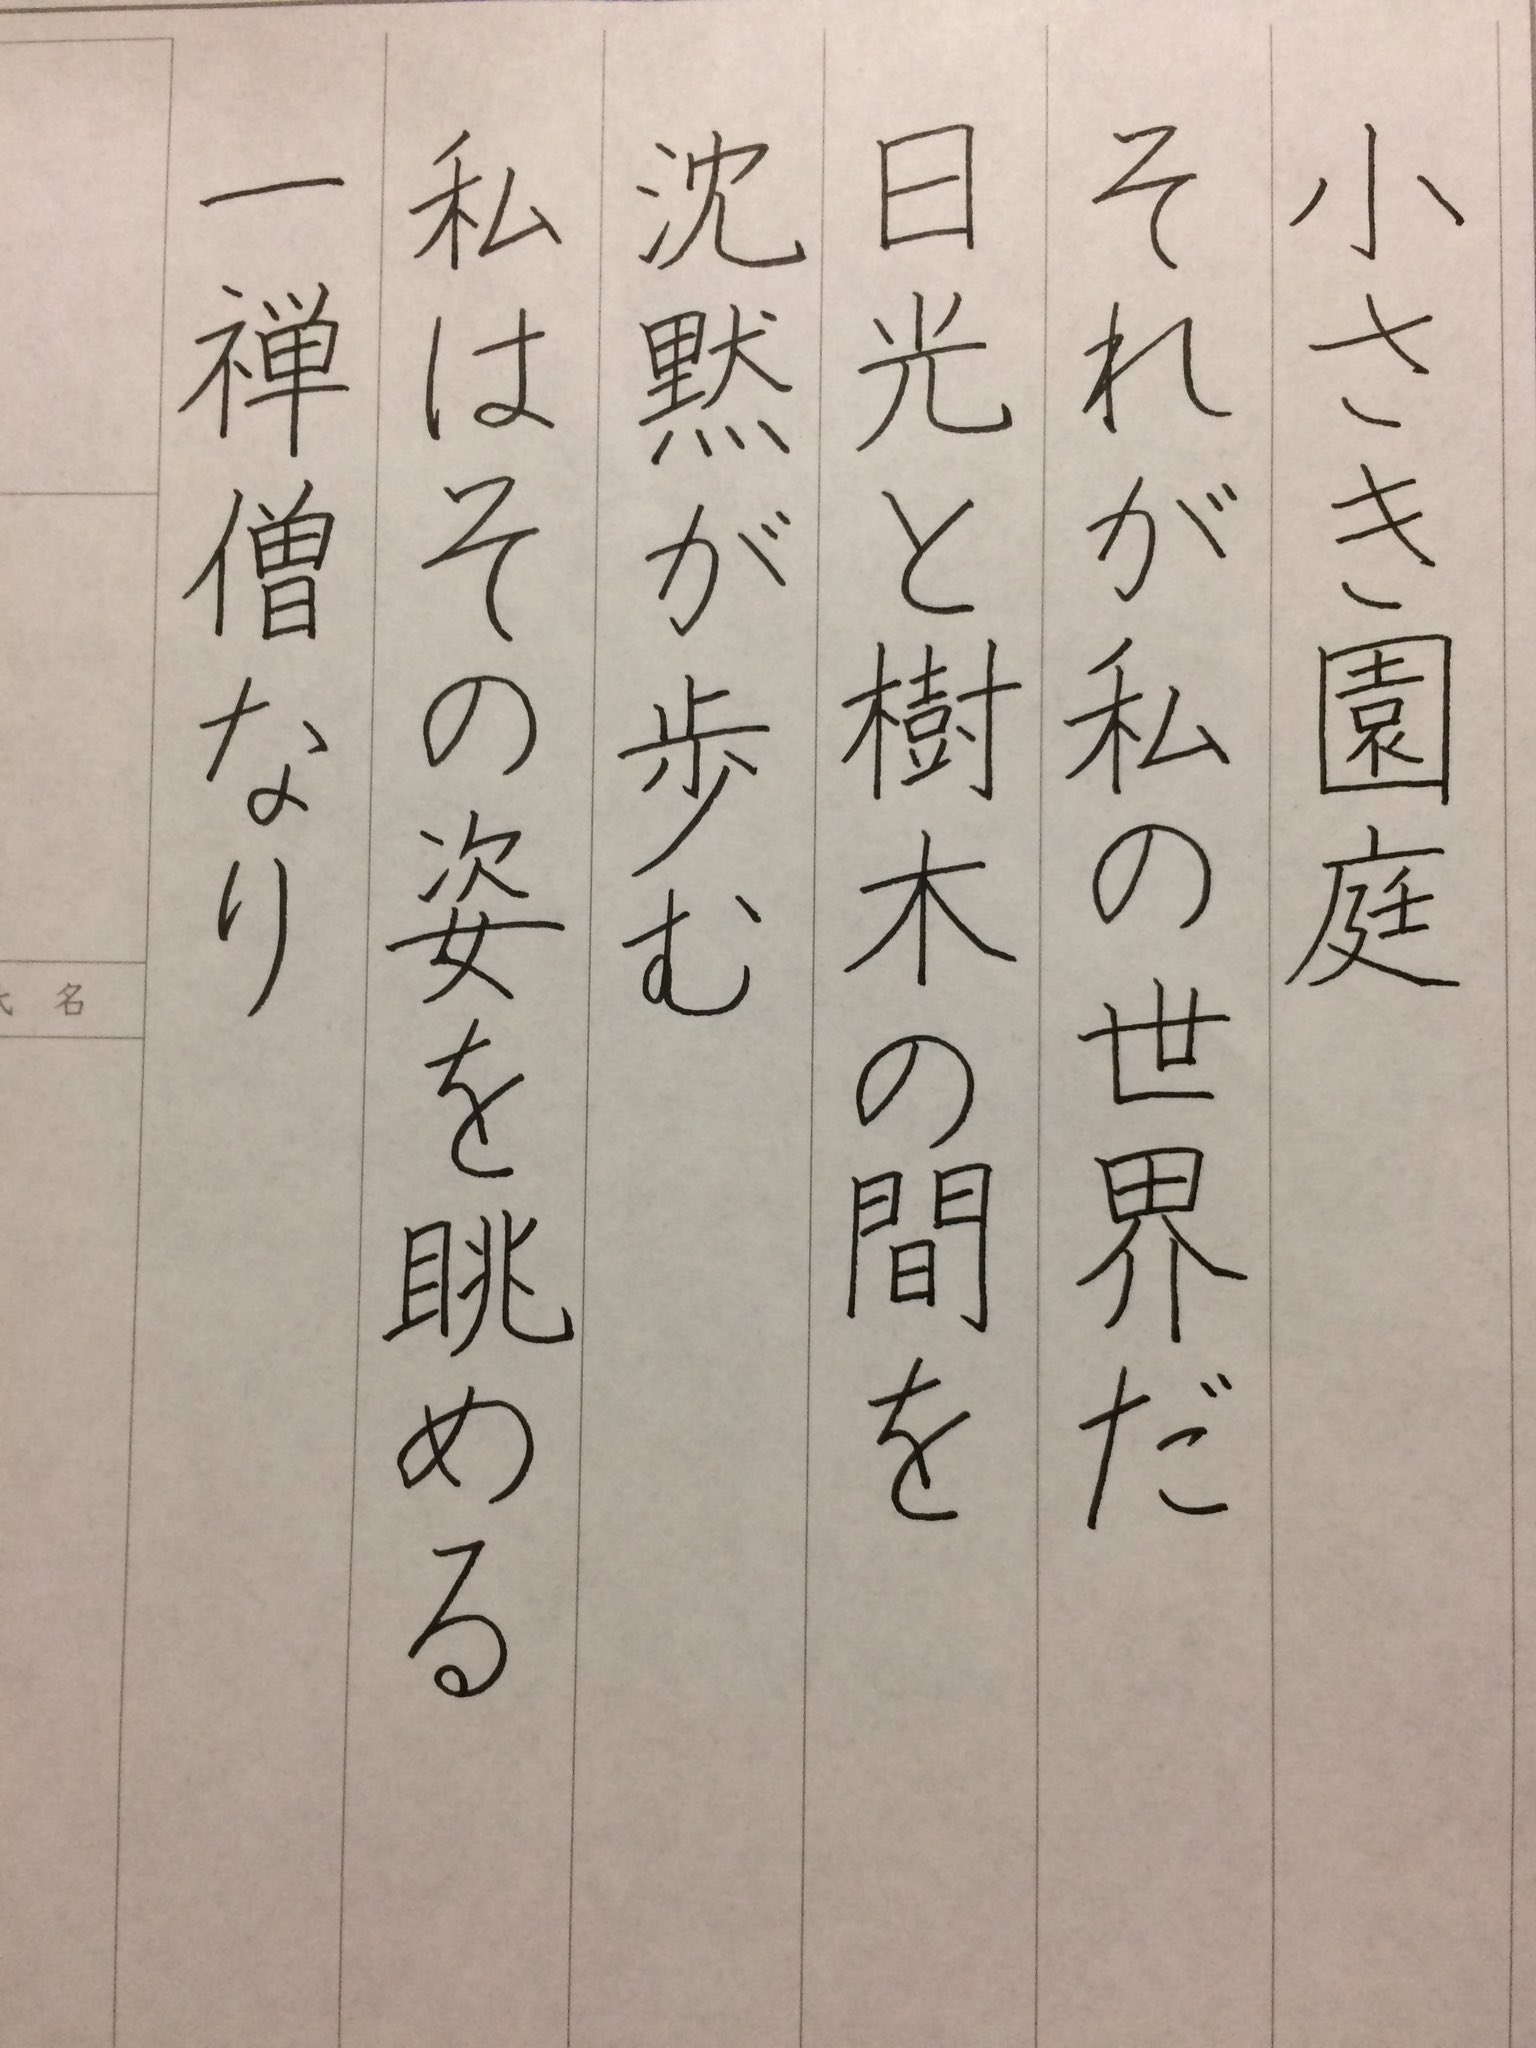 小さき園庭
それが私の世界だ
日光と樹木の間を
沈黙が歩む
私はその姿を眺める
一禅僧なり
氏名